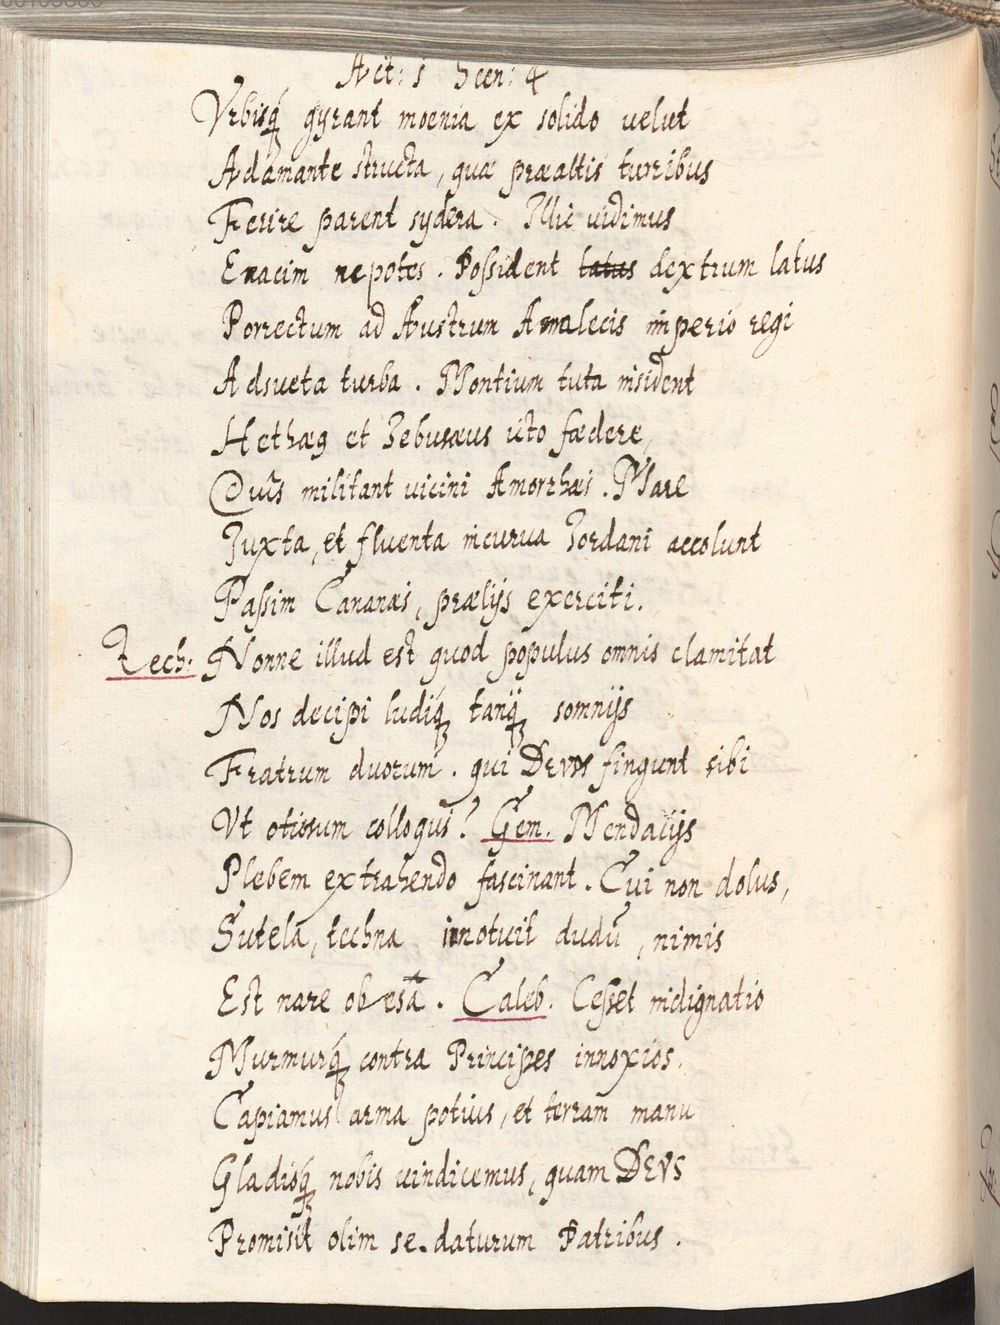 Act: 1 Scen: 4
Vrbisq́ gyrant moenia ex solido velut
Adamante structa, quæ præaltis turribus
Ferire parent sydera. Illic vidimus
Enacim nepotes. Possident latus dextrum latus
Porrectum ad Austrum Amalecis imperio regi
Adsueta turba. Montium tuta insident
Hethæq et Iebusæus icto fœdere,
Queis militant vicini Amorrhæi. Mare
Iuxta, et fluenta incurva Iordani accolunt
Passim Cananæi, prælijs exerciti.
Zech: Nonne illud est quod populus omnis clamitat
Nos decipi ludiq́ tanq́ somnijs
Fratrum duorum. qui DEVM fingunt sibi
Vt otiosum colloqui? Gem. Mendacijs
Plebem extrahendo fascinant. Cui non dolus,
Sutela, techna innotuit dudū, nimis
Est nare obesā. Caleb. Cesset indignatio
Murmurq́ contra Principes innoxios.
Capiamus arma potius, et terram manu
Gladioq́ nobis vindicemus, quam DEVS
Promisit olim se daturum Patribus.